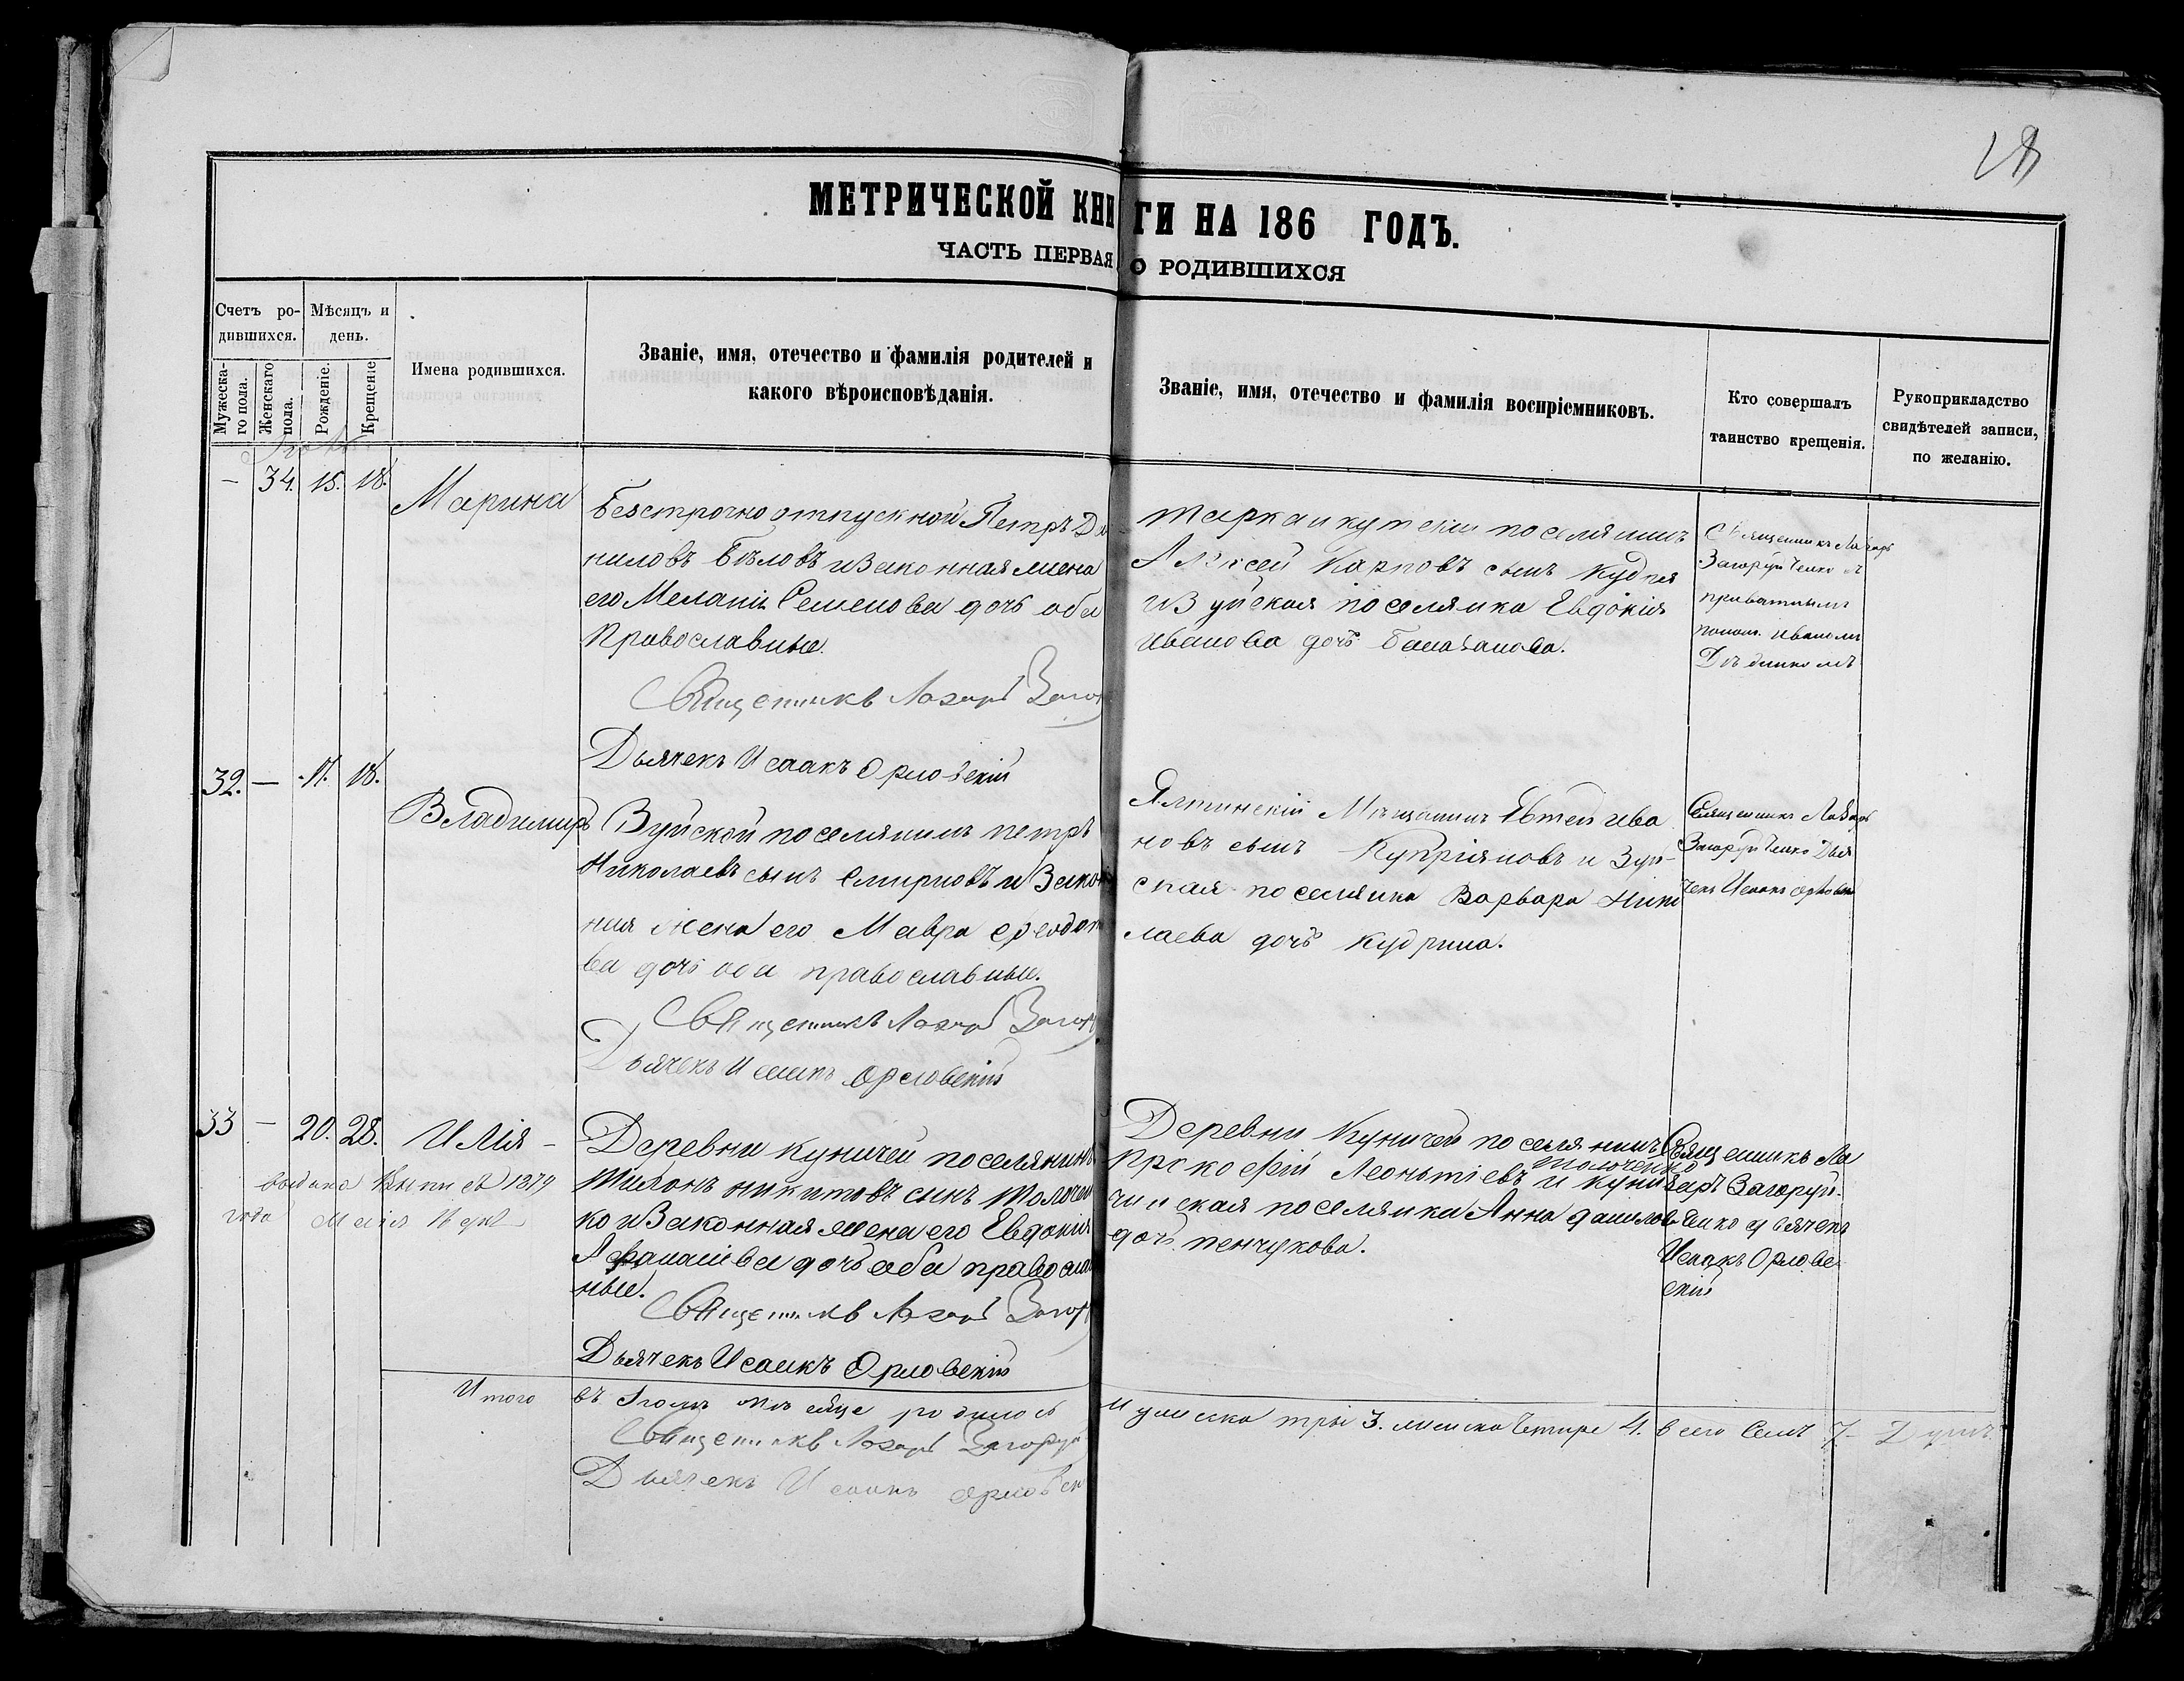 МЕТРИЧЕСКОЙ КНИГИ НА 186 ГОДЪ.
ЧАСТЬ ПЕРВАЯ О РОДИВШИХСЯ
Счетъ ро-
дившихся.
Мѣсяцъ и
день.
Мужеска-
го пола.
Женскаго
пола.
Рожденіе.
Крещеніе
Имена родившихся.
Званіе, имя, отечество и фамилія родителей и
какого вѣроисповѣданія.
Званіе, имя, отечество и фамилія воспріемниковъ.
Кто совершалъ
таинство крещенія.
Рукоприкладство
свидѣтелей записи,
по желанію.
— 34. 15. 18.
Марина
Безсрочно отпускной Петръ Да
ниловъ Бѣловъ и Законная жена
его Меланія Семенова дочь оба
Православные.
Священникъ Лазарь
Дьячекъ Исаакъ Орловскій
поселянинъ
Алексей Карповъ сынъ
поселянка Евдокія
Иванова дочь
Священникъ Лазарь
Загоруйченко
32. — 17. 18.
Владимиръ
Зуйской поселянинъ петръ
Николаевъ сынъ Смирновъ и Закон
ная жена его Мавра Федото
ва дочь оба православные.
Священникъ Лазарь
Дьячекъ Исаакъ Орловскій
Ялтинскій Мѣщанинъ Ива
новъ сынъ Купріяновъ и Зуй-
ская поселянка Варвара Нико
лаева дочь Кудрина.
Священникъ Лазарь
Загоруйченко Дья
чекъ Исаакъ Орловскій
33 — 20. 28.
Илія —
выдана 1879
года
Деревни Куничей поселянинъ
никитовъ сынъ Толочен
ко и Законная жена его Евдокия
Афанасіева дочь оба православ
ные.
Священникъ Лазарь
Дьячекъ Исаакъ Орловскій
Деревни Куничей поселянинъ
Прокофій Леонтіевъ Толоченко и Куни
чинская поселянка Анна данилова
дочь пенчукова.
Священникъ Ла
зарь Загоруй-
ченко дьячекъ
Исаакъ Орлов
скій
Итого въ этомъ мѣсяце родилось
мужеска три 3. женска четыре 4. всего семь 7 душъ
Священникъ Лазарь
Дьячекъ Исаакъ Орловск